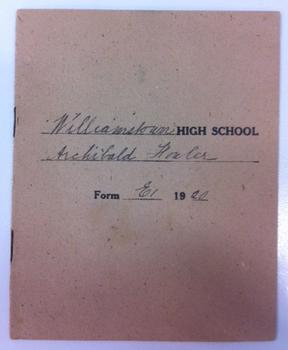 Williamstown HIGH SCHOOL
Archibald
Form E1 1920